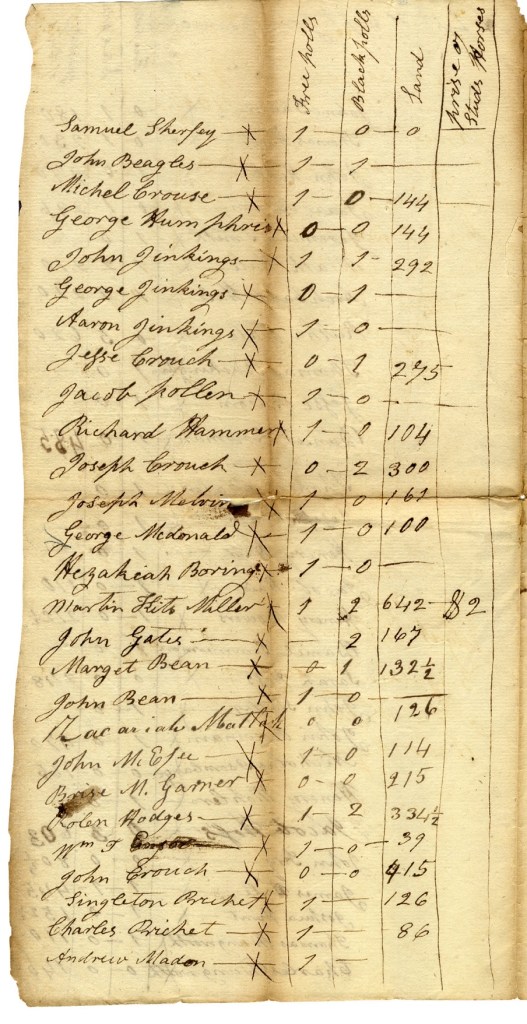 Free polls Black polls Land prise of Studs Horses
Samuel Sherfey — X 1 — 0 — 0
John Beagles — X 1 — 1 —
Michel Crouse — X 1 — 0 — 144
George Humphris X 0 — 0 — 144
John Jinkings — X 1 1 — 292
George Jinkings — X 0 — 1 —
Aaron Jinkings X 1 — 0 —
Jesse Crouch — X 0 — 1 275
Jacob pollen — X 1 — 0 —
Richard Hammer X 1 — 0 104
Joseph Crouch — X 0 — 2 300
Joseph Melvin X 1 — 0 162
George Mcdonald X 1 — 0 100
Hezakeah Boring X 1 — 0 —
Martin Kits Miller X 1 2 642 — $2
John Gates — X — 2 167
Marget Bean — X 0 1 132½
John Bean — X 1 — 0 —
Zacariah X 0 0 126
John X 1 — 0 114
Brise M. Garner X 0 — 0 215
Rolen Hodges — X 1 — 2 334½
Wm X 1 — 0 — 39
John Crouch — X 0 — 0 415
Singleton Pricket X 1 — 126
Charles Pricket — X 1 — 86
Andrew Madon — X 1 —